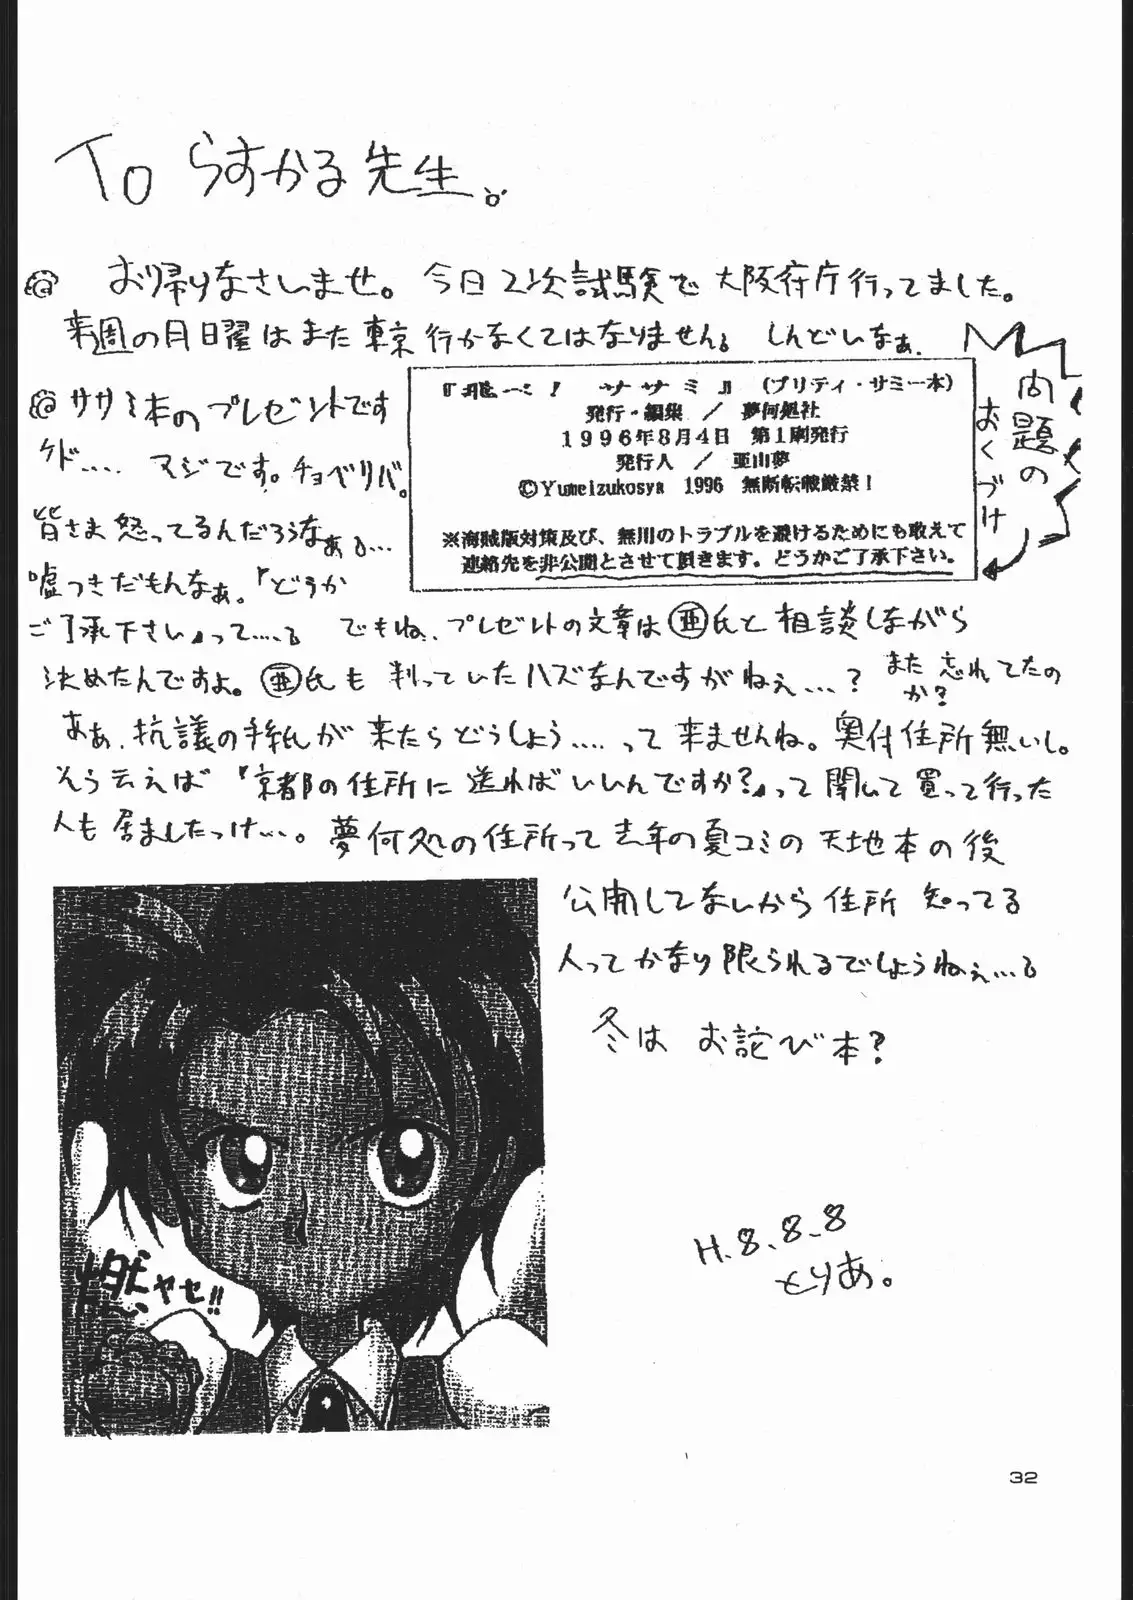 To らすかる先生。
お帰りなさいませ。今日2次試験で大阪府庁行ってました。
来週の月曜日はまた東京行かなくてはなりません。しんどいなぁ。
ササミ本のプレゼントです
ケド.... マジです。チョベリバ。
皆さま怒ってるんだろうなぁ...
嘘つきだもんなぁ。『どうか
ご了承下さい』って....。でもね、プレゼントの文章は亜氏と相談しながら
決めたんですよ。亜氏も判っていたハズなんですがねぇ...? また忘れてたの
か?
あぁ、抗議の手紙が来たらどうしよう....って来ませんね。奥付住所無いし。
そう云えば『京都の住所に送ればいいんですか?』って聞いて買って行った
人も居ましたっけ...。夢何処の住所って去年の夏コミの天地本の後
公開してないから住所知ってる
人ってかなり限られるでしょうねぇ...。
冬はお詫び本?
問題の
おくづけ
『飛べ! ササミ』(プリティ・サミー本)
発行・編集 / 夢何処社
1996年8月4日 第1刷発行
発行人 / 亜山夢
©Yumeizukosya 1996 無断転載厳禁!
※海賊版対策及び、無用のトラブルを避けるためにも敢えて
連絡先を非公開とさせて頂きます。どうかご了承下さい。
燃やせ!!
H.8.8.8
とりあ。
32